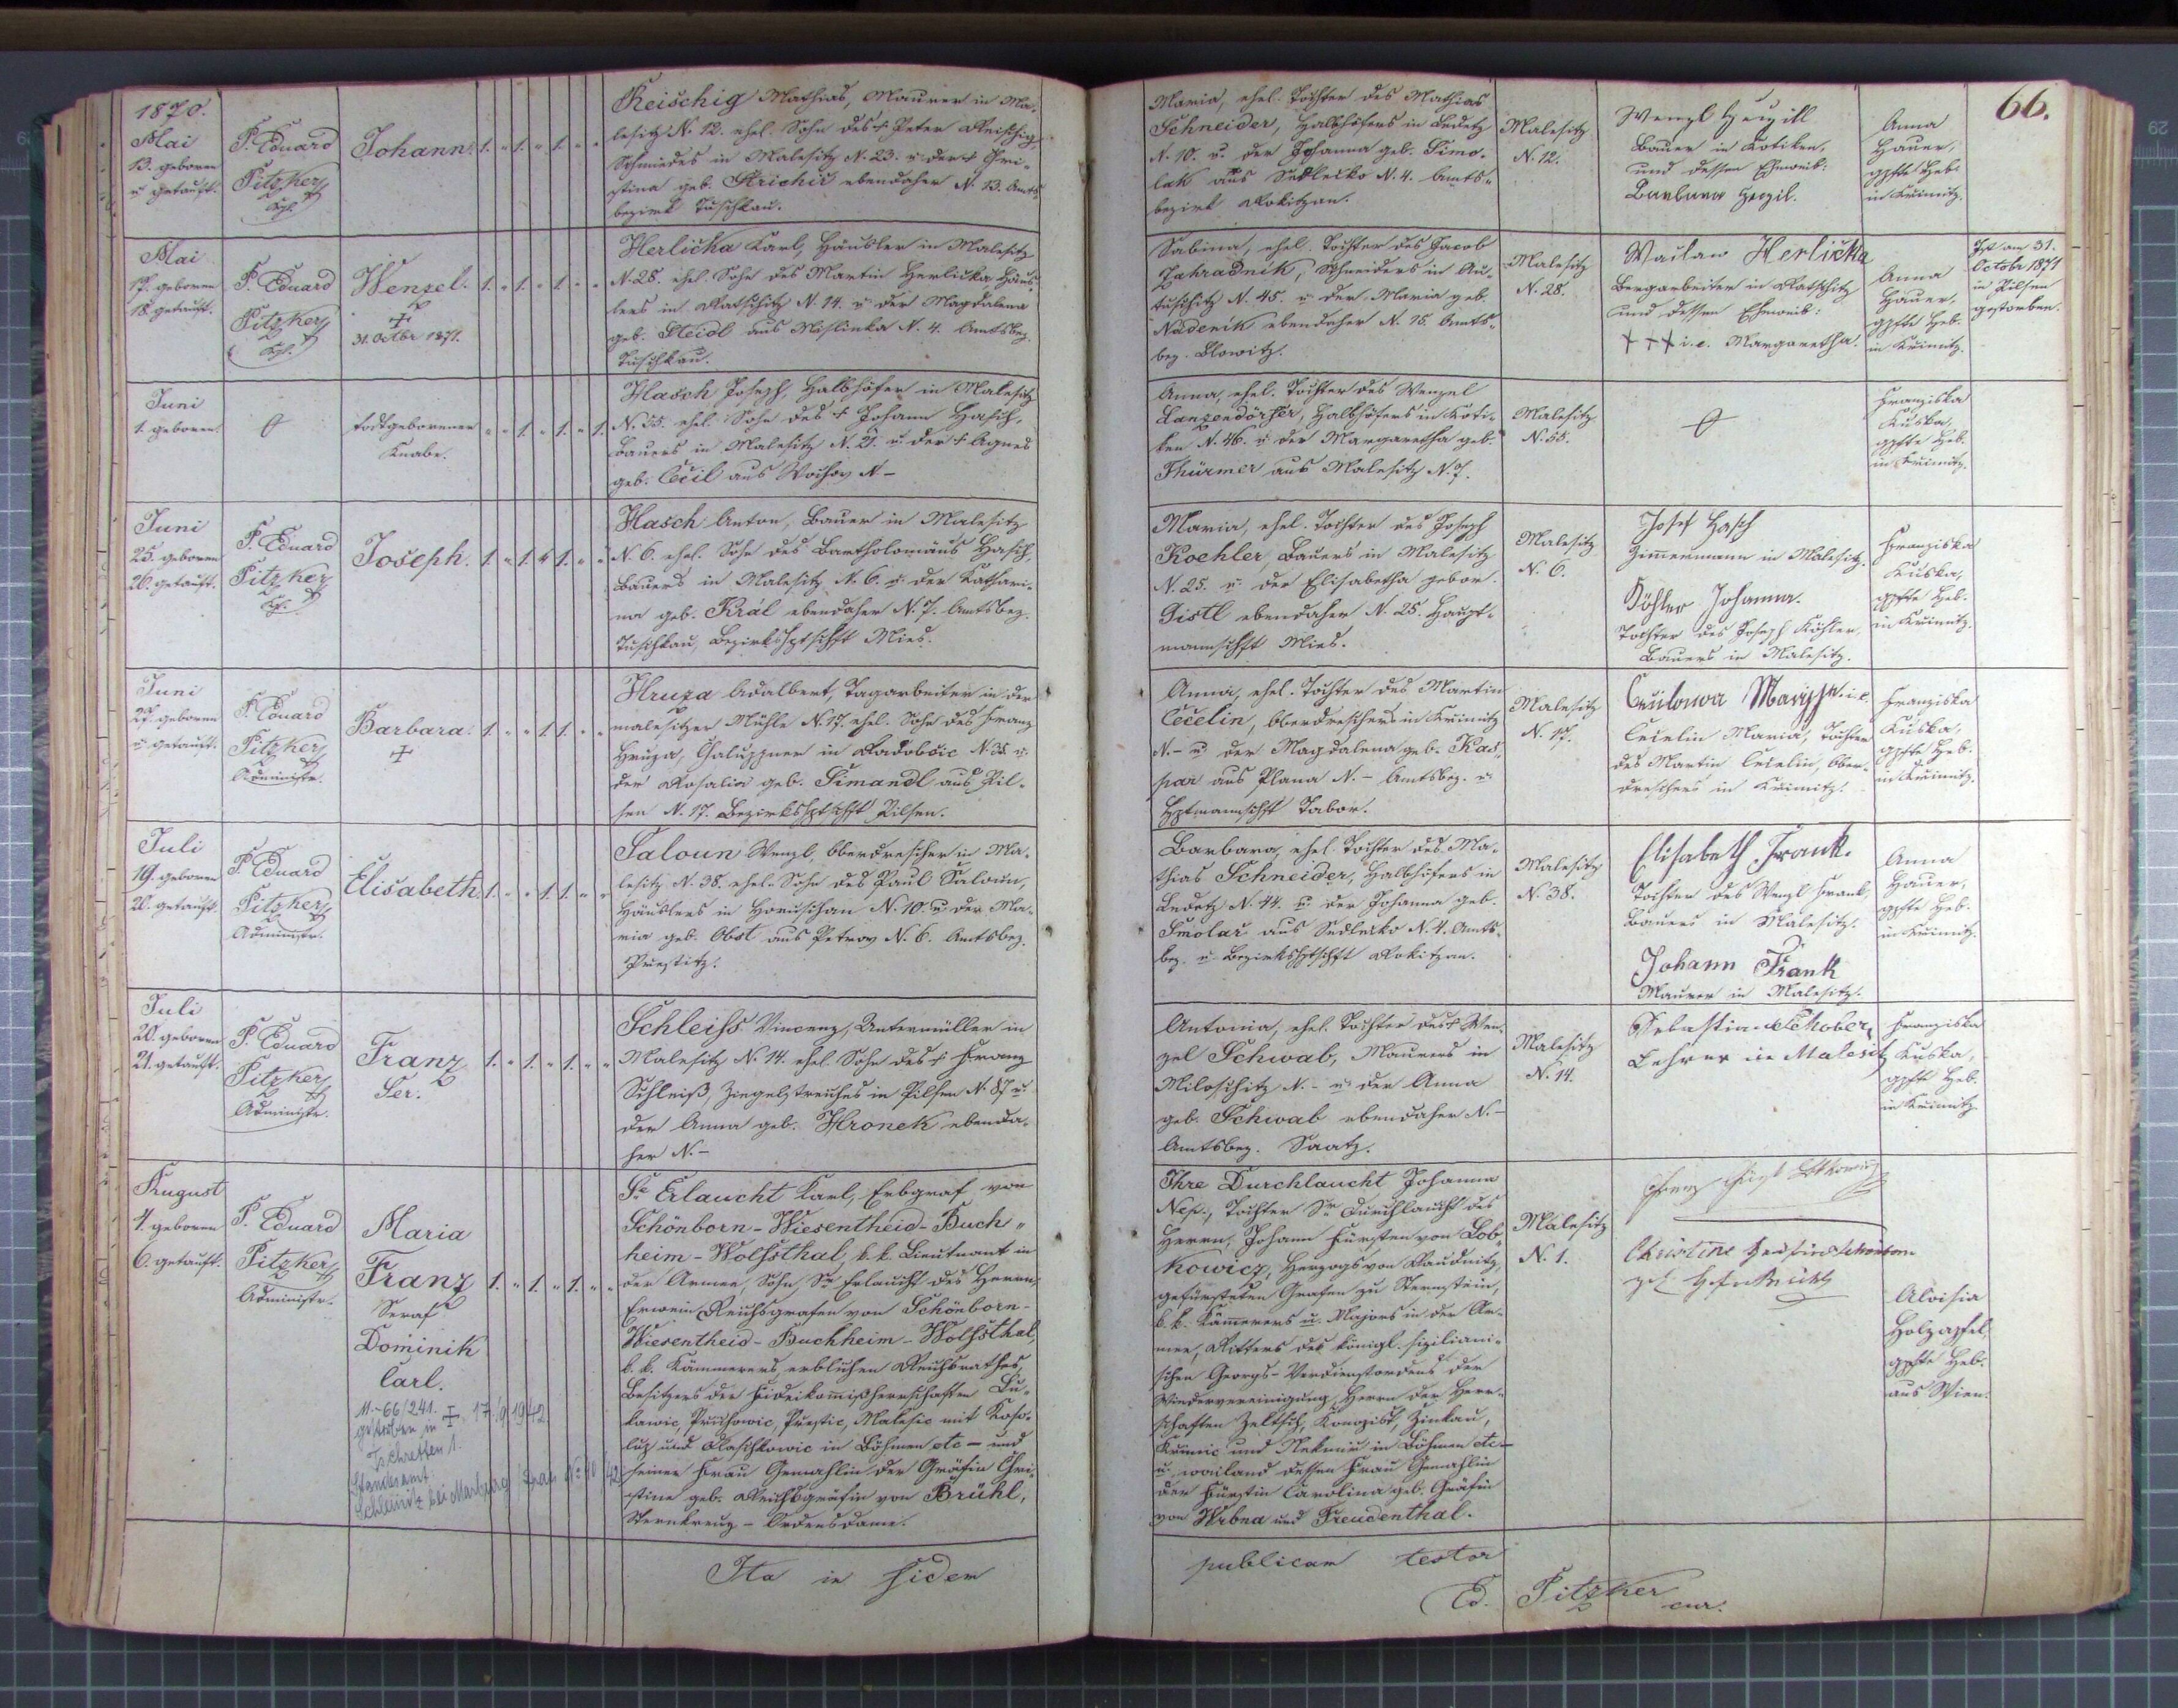 1870.
Mai
13. geboren
u getauft.
P. Eduard
Pitzker
Kpl.
Johann.
1. " 1. " 1. " "
Reischig Mathias, Maurer in Ma-
lesitz N. 12. ehel. Sohn des + Peter Reischig
Schmiedes in Malesitz N. 23. u. der + Chri-
stina geb. ebendaher N. 13. Amts-
bezirk Tuschkau.
Maria, ehel. Tochter des Mathias
Schneider, Halbhöfers in Ledetz
N. 10. u. der Johanna geb. Simo-
lak aus Sedlecko N. 4. Amts-
bezirk Rokitzan.
Malesitz
N. 12.
Wenzl
Bauer in Kotiken,
und dessen Eheweib:
Barbara
Anna
Hauer,
gpfte Heb.
in Krimitz.
66.
Mai
17. geboren
18. getauft.
P. Eduard
Pitzker
Kpl.
Wenzel.
+
31. Octbr 1871.
1. " 1. " 1. " "
Herlicka Karl, Häusler in Malesitz
N. 28. ehel. Sohn des Martin Herlicka Häus-
lers in Ratschitz N. 14. u. der Magdalena
geb. Steidl aus Mislinka N. 4. Amtsbez.
Tuschkau.
Sabina, ehel. Tochter des Jacob
Zahradnik, Schneiders in Au-
tuschitz N. 45. u. der Maria geb.
Nadenik ebendaher N. 15. Amts-
bez. Blowitz.
Malesitz
N. 28.
Waclaw Herlicka
Bergarbeiter in Ratschitz
und dessen Eheweib:
+++ i. e. Margaretha.
Anna
Hauer,
gpfte Heb.
in Krimitz.
Ist am 31.
October 1871
in Pilsen
gestorben.
Juni
1. geboren.
todtgeborener
Knabe.
" " 1. " 1. " 1.
Hasch Joseph, Halbhöfer in Malesitz
N. 55. ehel. Sohn des + Johann Hasch,
Bauers in Malesitz N. 21. u. der + Agnes
geb. Cecil aus Wochow N –
Anna, ehel. Tochter des Wenzel
Lanzendörfer, Halbhöfers in Koti-
ken N. 46. u. der Margaretha geb.
Thürmer aus Malesitz N. 7.
Malesitz
N. 55.
Franziska
Kuska,
gpfte Heb.
in Krimitz.
Juni
25. geboren
26. getauft.
P. Eduard
Pitzker
Kpl.
Joseph.
1. " 1. " 1. " "
Hasch Anton, Bauer in Malesitz
N. 6. ehel. Sohn des Bartholomäus Hasch,
Bauers in Malesitz N. 6. u. der Kathari-
na geb. Král ebendaher N. 7. Amtsbez.
Tuschkau, Bezirkshptschft Mies.
Maria, ehel. Tochter des Joseph
Koehler, Bauers in Malesitz
N. 25. u. der Elisabetha gebor.
Distl ebendaher N. 25. Haupt-
mannschft Mies.
Malesitz
N. 6.
Josef Hasch
Zimmermann in Malesitz.
Köhler Johanna.
Tochter des Joseph Köhler,
Bauers in Malesitz.
Franziska
Kuska,
gpfte Heb.
in Krimitz.
Juni
27. geboren
u getauft.
P. Eduard
Pitzker
Administr.
Barbara.
+
1. " " 1. 1. " "
Hruza Adalbert, Tagarbeiter in der
malesitzer Mühle N. 17. ehel. Sohn des Franz
Hruza, Chaluppner in Radobčic N. 35. u.
der Rosalia geb. Simandl aus Pil-
sen N. 17. Bezirkshptschft Pilsen.
Anna, ehel. Tochter des Martin
Cecelin, Oberdreschers in Krimitz
N. – u der Magdalena geb. Kas-
par aus Plana N. – Amtsbez. u.
Hptmannschft Tabor.
Malesitz
N. 17.
i. e.
Cecelin Maria, Tochter
des Martin Cecelin, Ober-
dreschers in Krimitz.
Franziska
Kuska,
gpfte Heb.
in Krimitz.
Juli
19. geboren
20. getauft.
P. Eduard
Pitzker
Administr.
Elisabeth.
1. " " 1. 1. " "
Saloun Wenzl, Oberdrescher in Ma-
lesitz N. 38. ehel. Sohn des Paul Saloun,
Häuslers in Horuschan N. 10. u. der Ma-
ria geb. Obst aus Petrow N. 6. Amtsbez.
Prestitz.
Barbara, ehel. Tochter des Ma-
thias Schneider, Halbhöfers in
Ledetz N. 44. u. der Johanna geb.
Smolar aus Sedlecko N. 4. Amts-
bez. u. Bezirkshptschft Rokitzan.
Malesitz
N. 38.
Elisabeth Frank.
Tochter des Wenzl Frank,
Bauers in Malesitz.
Johann Frank
Maurer in Malesitz.
Anna
Hauer,
gpfte Heb.
in Krimitz.
Juli
20. geboren
21. getauft.
P. Eduard
Pitzker
Administr.
Franz
Ser.
1. " 1. " 1. " "
Schleiss Vincenz, Untermüller in
Malesitz N. 14. ehel. Sohn des + Franz
Schleiß, Ziegelstreichers in Pilsen N. 87 u.
der Anna geb. Hronek ebenda-
her N. –
Antonia, ehel. Tochter des + Wen-
zel Schwab, Maurers in
Miloschitz N. – u. der Anna
geb. Schwab ebendaher N. –
Amtsbez. Saatz.
Malesitz
N. 14.
Sebastian Schober,
Lehrer in Malesitz
Franziska
Kuska,
gpfte Heb.
in Krimitz
August
4. geboren
6. getauft.
P. Eduard
Pitzker
Administr.
Maria
Franz
Seraf
Dominik
Carl.
11.-66/241.
gestorben in + 17./9 1942
Tschretten 1.
Standesamt
Schleinitz bei Marburg/Drau N° 40/42
1. " 1. " 1. " "
Se Erlaucht Karl, Erbgraf von
Schönborn-Wiesentheid-Buch-
heim-Wolfsthal, k. k. Lieutnant in
der Armee, Sohn Sr Erlaucht des Herrn,
Erwein Reichsgrafen von Schönborn-
Wiesentheid-Buchheim-Wolfsthal,
k. k. Kämmerers, erblichen Reichsrathes,
Besitzers der Fideikommißherrschaften Lu-
kawic, Pruchowic, Prestic, Malesic mit Koso-
lup und Rlaschkowic in Böhmen etc – und
seiner Frau Gemahlin der Gräfin Chri-
stine geb. Reichsgräfin von Brühl,
Sternkreuz-Ordensdame.
Ihre Durchlaucht Johanna
Nep., Tochter Sr Durchlaucht des
Herrn, Johann Fürsten von Lob-
kowicz, Herzogs von Raudnitz,
gefürsteten Grafen zu Sternstein,
k. k. Kämmerers u. Majors in der Ar-
mee, Ritters des königl. sizilianı-
schen Georgs-Verdienstordens der
Wiedervereinigung, Herrn der Herr-
schaften Zeltsch, Konopist, Zinkau,
Krimic und Nekmir in Böhmen etc –
u. weiland dessen Frau Gemahlin
der Fürstin Carolina geb. Gräfin
von Wrbna und Freudenthal.
Malesitz
N. 1.
Franz Fürst Lobkowicz
Christine Gräfin Schönborn
geb. Gräfin Brühl
Aloisia
Holzapfel,
gpfte Heb.
aus Wien.
Ita in fidem
publicam testor
Ed. Pitzker
cur.